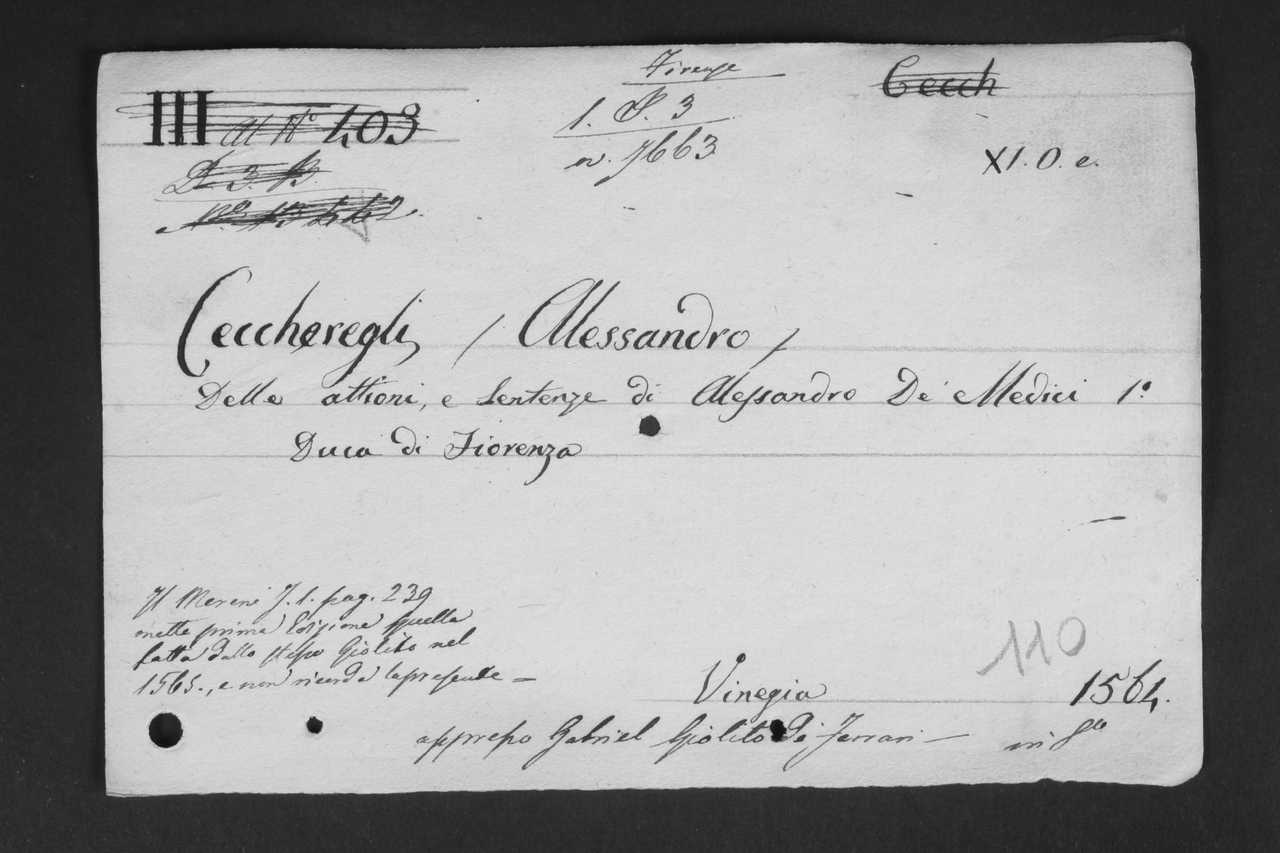 Firenze
Cecch
III al N.o 403
1. P. 3
n. 7663
XI. O. e.
D. 3. B.
Ceccheregli, / Alessandro /
Delle attioni, e Sentenze di Alessandro De' Medici 1.o
Duca di Fiorenza
Il Moreni T. 1. pag. 239
mette prima Edizione quella
fatta dallo stesso Giolito nel
1565., e non ricorda la presente —
110
Vinegia 1564.
appresso Gabriel Giolito De' Ferrari — in 8vo